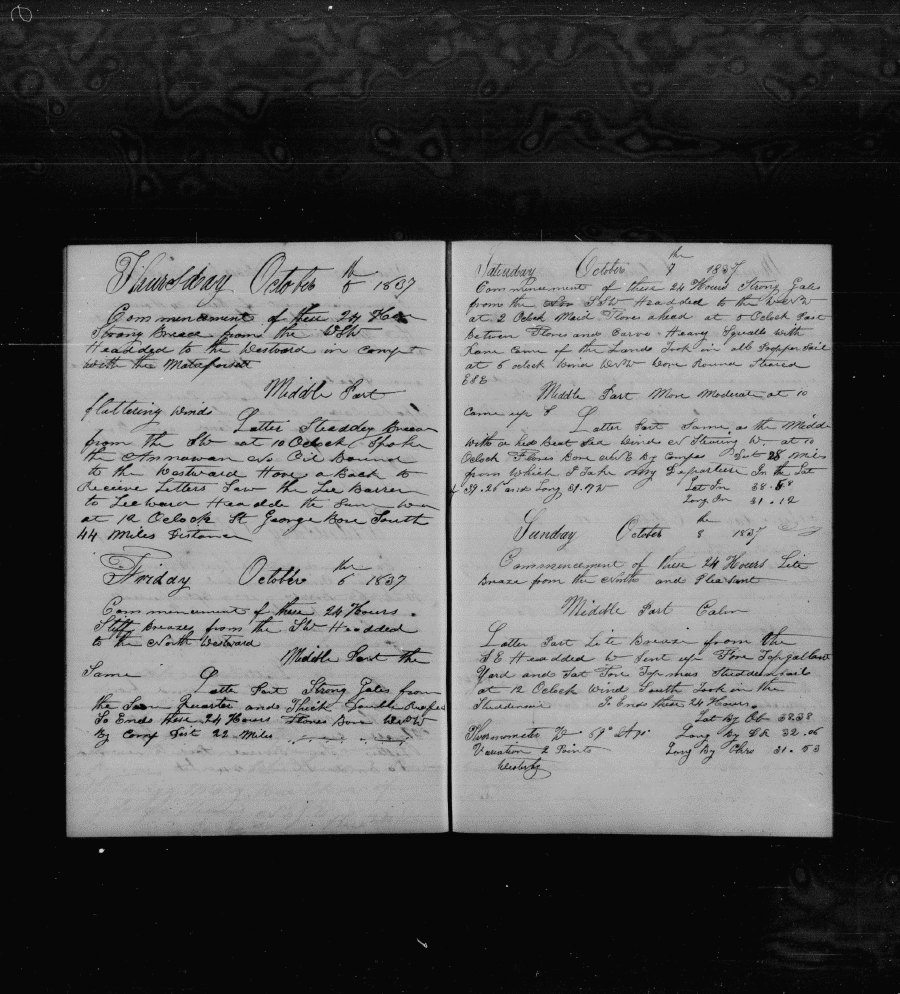 Thursday October 5th 1837
Commencement of these 24 Hours
Strong Breeze from the WSW
Headded to the Westward in Compt
with the
Middle Part
flattering winds
Latter Steaddy Breeze
from the SW at 10 Oclock Spoke
the Annawan Oil Bound
to the Westward Hove a Back to
Recieve Letters Saw the Lee Barren
to Leeward Headde the Same
at 12 Oclock St George Bore South
44 Miles Distance
Friday October 6th 1837
Commencement of these 24 Hours
Stiff Breazes from the SW Headded
to the North Westward
Middle Part the
Same
Latter Part Strong Gales from
the Same Quarter and Thick Double Reefed
So Ends these 24 Hours Flores Bore WNW
By Comp Dist 22 Miles
Saturday October 7th 1837
Commencement of these 24 Hours Strong Gales
from the SSW Headded to the WNW
at 2 Oclock Maid Flores ahead at 5 Oclock Past
Between Flores and Corvo Heavy Squalls with
Rain Came of the Lands Took in all
at 6 oclock Wind WNW Wore Round Steared
ESE
Middle Part More Moderate at 10
Came up S
Latter Part Same as the Middle
with a Bad Beat Sea Wind N Stearing W. at 10
Oclock Flores Bore By Compas Dist 28 Miles
from Which I Take My Departure In the Lat
of 39.25 and Long 31.
Lat In 38.58
Long In 31.12
Sunday October 8th 1837
Commencement of these 24 Hours Lite
Breaze from the North and Pleasant
Middle Part Calm
Latter Part Lite Breaze from the
SE Headded W Sent up Fore Topgallant
Yard and Sat Fore Topmas Studdensail
at 12 Oclock Wind South Took in the
Studdensail So Ends these 24 Hours
Lat By Ob 38.38
Thermometer 70° Long By DR 32.06
Variation 2 Points Long By Chro 31.53
Westerly